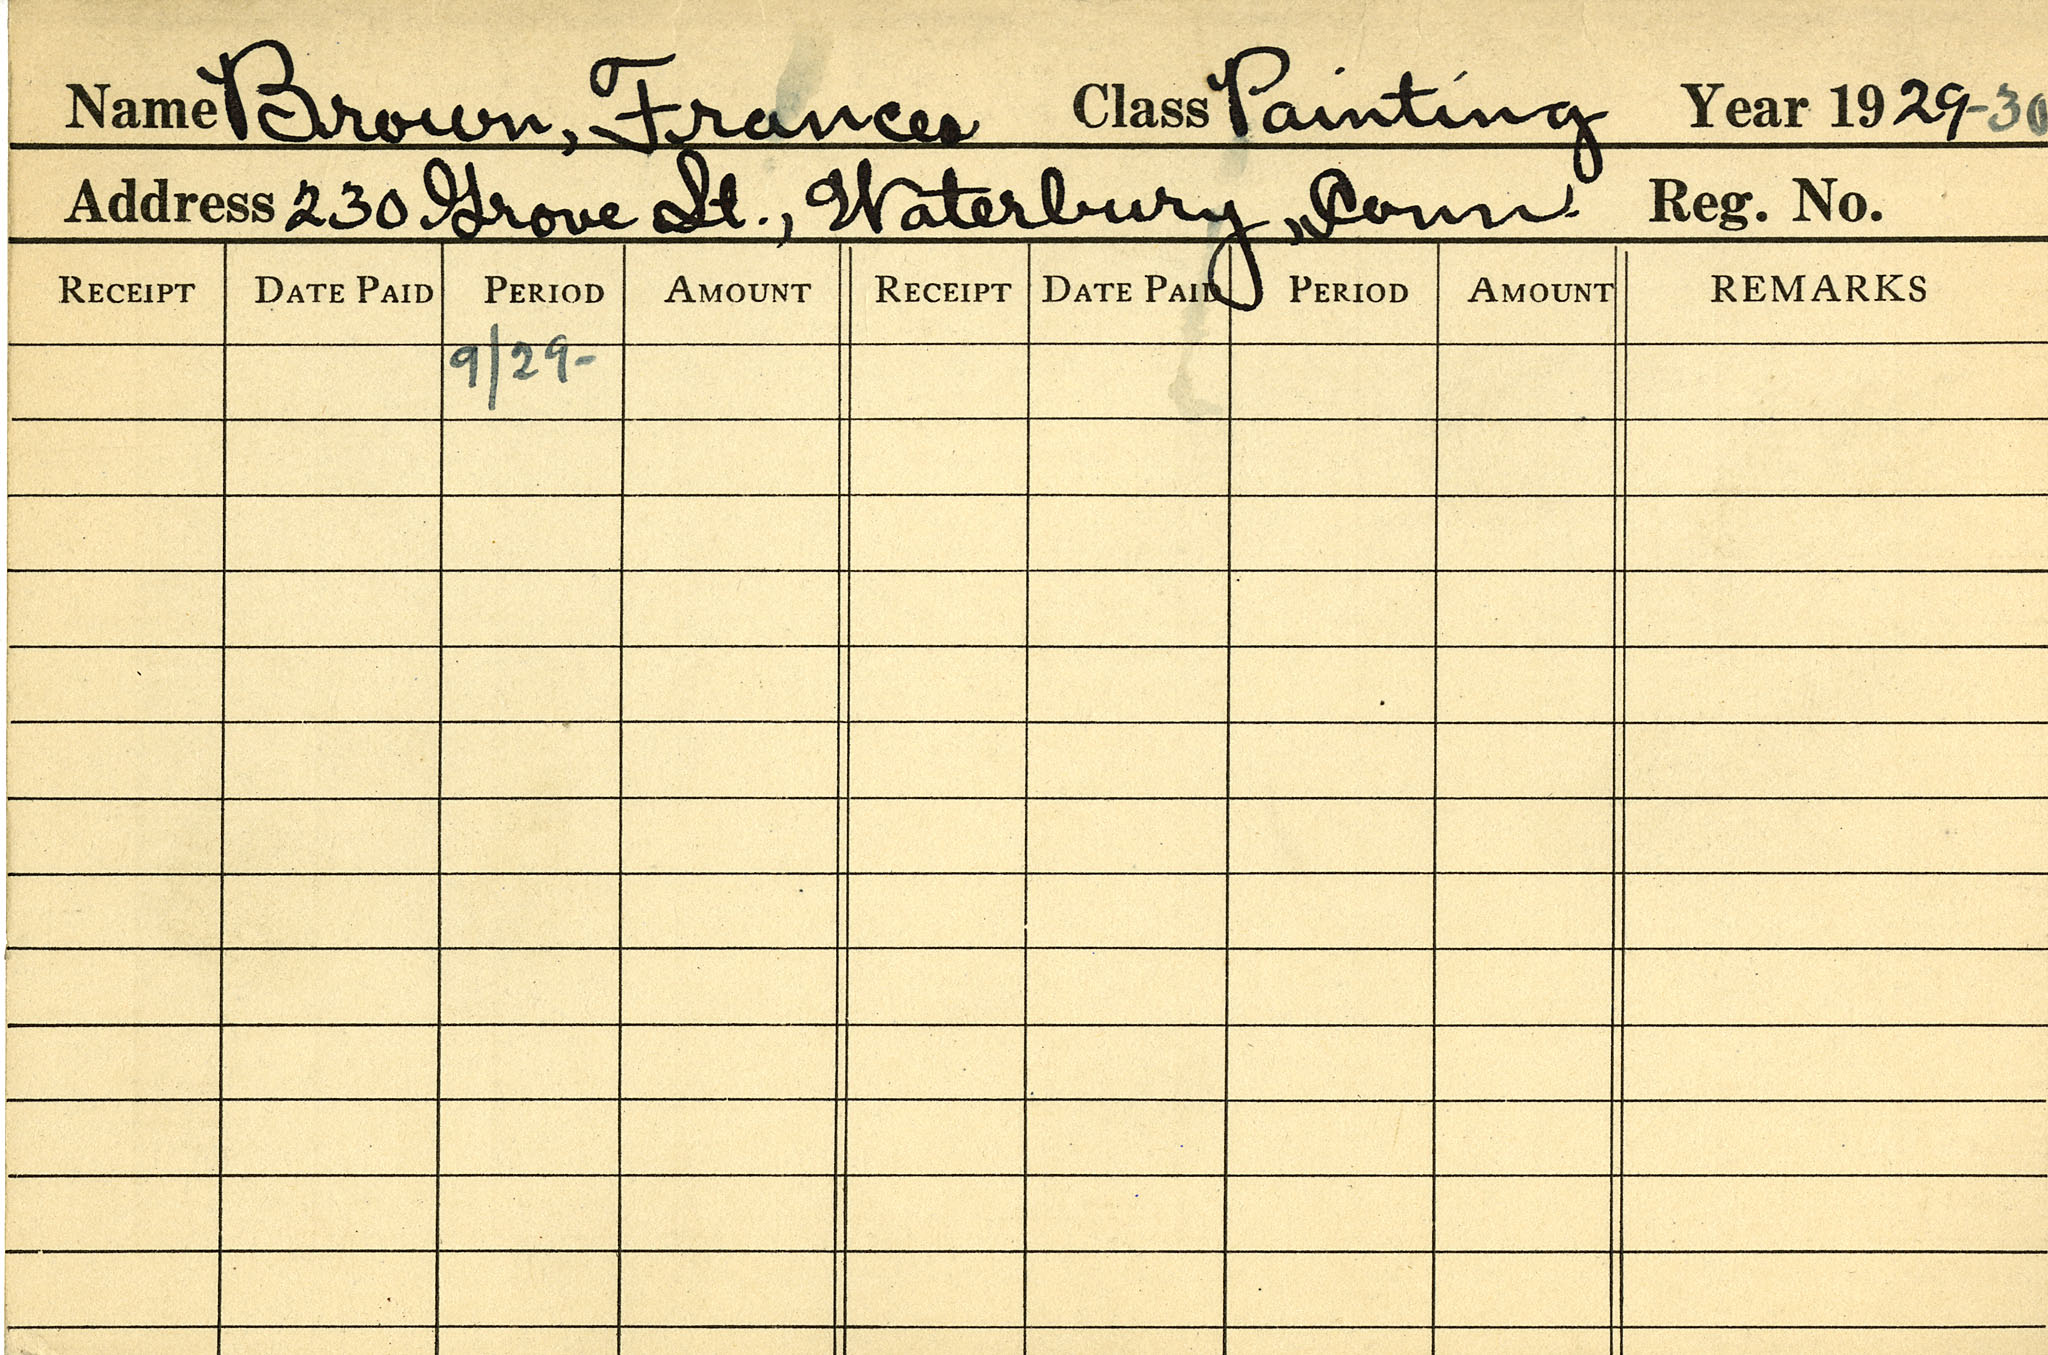 Name Brown, Frances Class Painting Year 1929-30
Address 230 Grove St., Waterbury, Conn. Reg. No.
RECEIPT DATE PAID PERIOD AMOUNT RECEIPT DATE PAID PERIOD AMOUNT REMARKS
9/29-